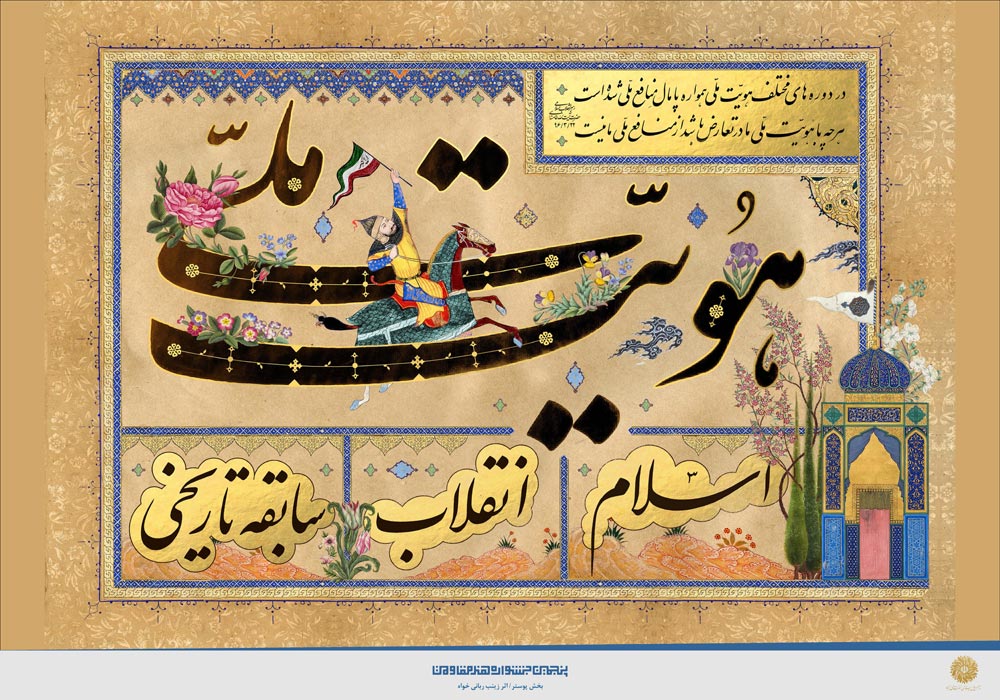 در دوره‌های مختلف هویت ملی همواره پامال منافع ملی شده است
هرچه با هویت ملی ما در تعارض باشد از منافع ملی ما نیست
۹۶/۳/۲۲
هویت ملی
اسلام
انقلاب
سابقه تاریخی
پنجمین جشنواره هنر مقاومت
بخش پوستر/ اثر زینب ربانی خواه